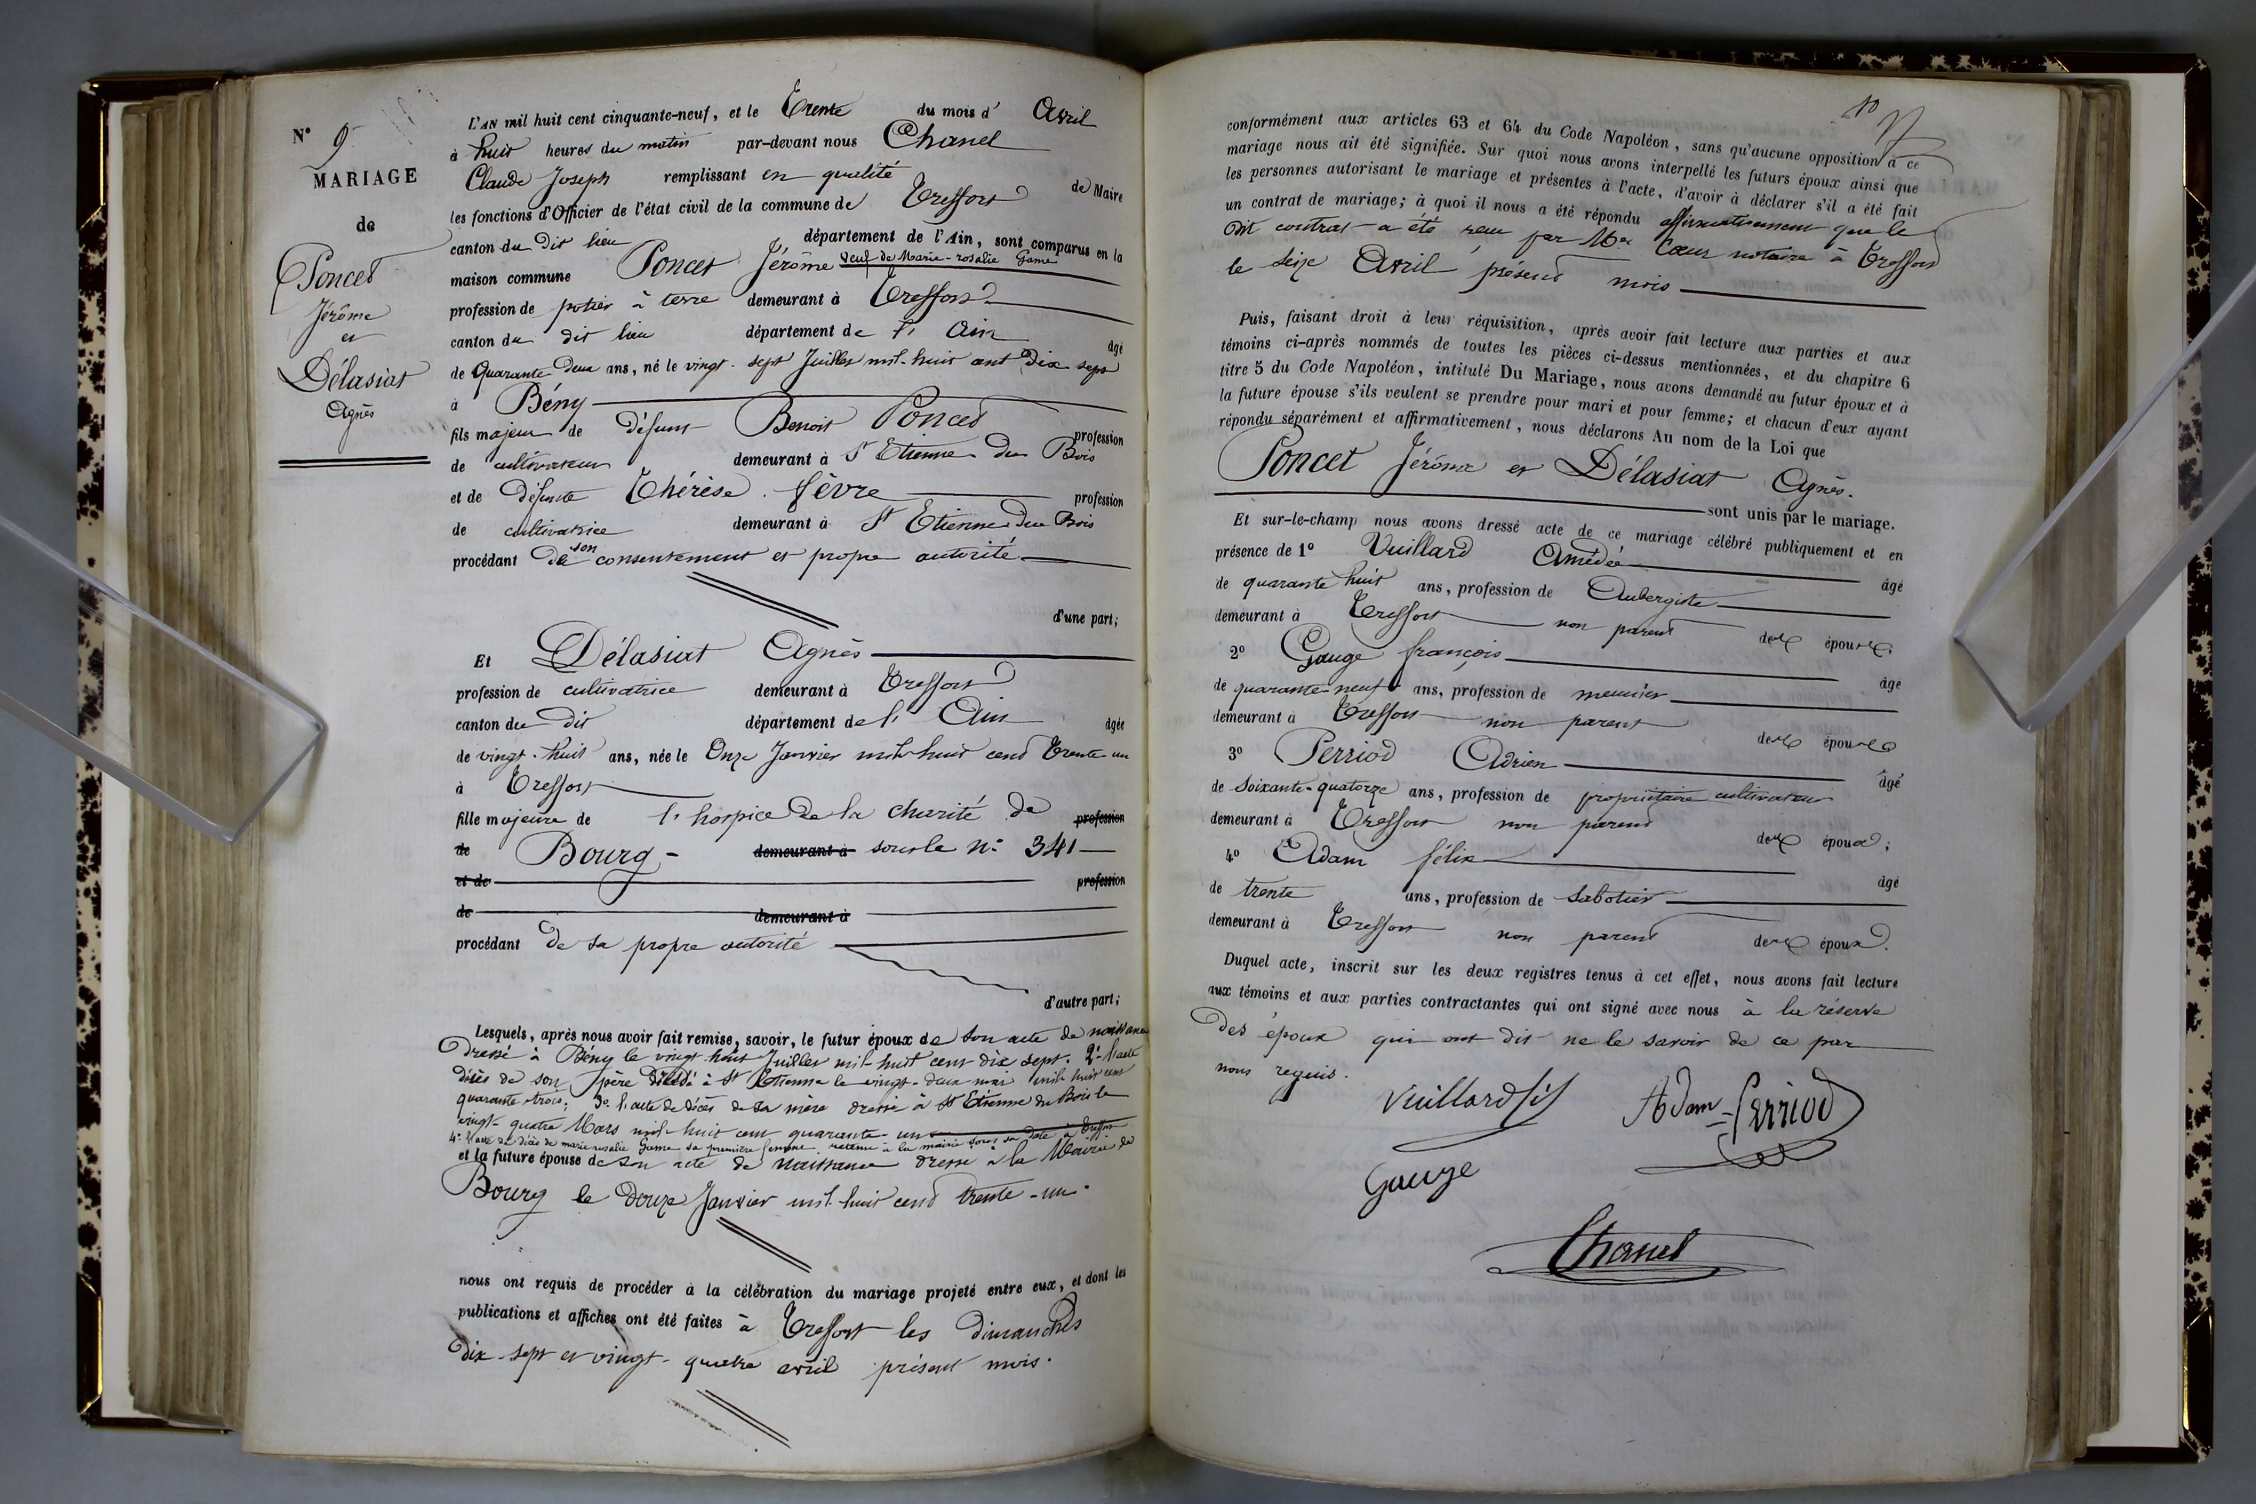 N° 9
MARIAGE
de
Poncet
Jérôme
et
Délasiat
Agnès
L'AN mil huit cent cinquante-neuf, et le Trente du mois d' Avril
à huit heures du matin par-devant nous Chanel
Claude Joseph remplissant en qualité de Maire
les fonctions d'Officier de l'état civil de la commune de Treffort
canton du dit lieu département de l'Ain, sont comparus en la
maison commune Poncet Jérôme veuf de Marie-rosalie Game
profession de potier à terre demeurant à Treffort
canton du dit lieu département de l' Ain âgé
de Quarante Deux ans, né le vingt-sept Juillet mil-huit cent Dix sept
à Bény
fils majeur de défunt Benoit Poncet profession
de cultivateur demeurant à St Etienne Du Bois
et de défunte Thérèse fèvre profession
de cultivatrice demeurant à St Etienne Du Bois
procédant de son consentement et propre autorité
d'une part;
Et Délasiat Agnès
profession de cultivatrice demeurant à Treffort
canton du dit département de l' Ain âgée
de vingt-huit ans, née le Onze Janvier mil-huit cent Trente-un
à Treffort
fille majeure de l'hospice de la charité de profession
de Bourg - demeurant à sous le N° 341
et de profession
de demeurant à
procédant de sa propre autorité
d'autre part;
Lesquels, après nous avoir fait remise, savoir, le futur époux de son acte de naissance
Dressé à Bény le vingt-huit Juillet mil-huit cent dix sept. 2° l'acte
décès de son père à St Etienne le vingt-deux mai mil-huit cent
quarante-trois; 3° l'acte de décès de sa mère dressé à St Etienne du Bois le
vingt-quatre Mars mil-huit cent quarante-un à Treffort
4° l'acte de décès de marie rosalie Game sa première femme retenu à la mairie sous sa date
et la future épouse de son acte de naissance dressé à la Mairie de
Bourg le Douze Janvier mil-huit cent trente-un.
nous ont requis de procéder à la célébration du mariage projeté entre eux, et dont les
publications et affiches ont été faites à Treffort les dimanches
Dix-sept et vingt-quatre avril présent mois.
10
conformément aux articles 63 et 64 du Code Napoléon, sans qu'aucune opposition à ce
mariage nous ait été signifiée. Sur quoi nous avons interpellé les futurs époux ainsi que
les personnes autorisant le mariage et présentes à l'acte, d'avoir à déclarer s'il a été fait
un contrat de mariage; à quoi il nous a été répondu affirmativement que le
dit contrat a été reçu par Me Cœur notaire à Treffort
le seize Avril présent mois
Puis, faisant droit à leur réquisition, après avoir fait lecture aux parties et aux
témoins ci-après nommés de toutes les pièces ci-dessus mentionnées, et du chapitre 6
titre 5 du Code Napoléon, intitulé Du Mariage, nous avons demandé au futur époux et à
la future épouse s'ils veulent se prendre pour mari et pour femme; et chacun d'eux ayant
répondu séparément et affirmativement, nous déclarons Au nom de la Loi que
Poncet Jérôme et Délasiat Agnès.
sont unis par le mariage.
Et sur-le-champ nous avons dressé acte de ce mariage célébré publiquement et en
présence de 1° Vuillard Amédée âgé
de quarante huit ans, profession de Aubergiste
demeurant à Treffort non parent des époux
2° Gauge françois âgé
de quarante-neuf ans, profession de meunier
demeurant à Treffort non parent des époux
3° Perriod Adrien âgé
de soixante-quatorze ans, profession de propriétaire cultivateur
demeurant à Treffort non parent des époux;
4° Adam félix âgé
de trente ans, profession de Sabotier
demeurant à Treffort non parent des époux.
Duquel acte, inscrit sur les deux registres tenus à cet effet, nous avons fait lecture
aux témoins et aux parties contractantes qui ont signé avec nous à la réserve
Des époux qui ont dit ne le savoir de ce par
nous requis.
Vuillard fils
Adam
Perriod
Gauge
Chanel